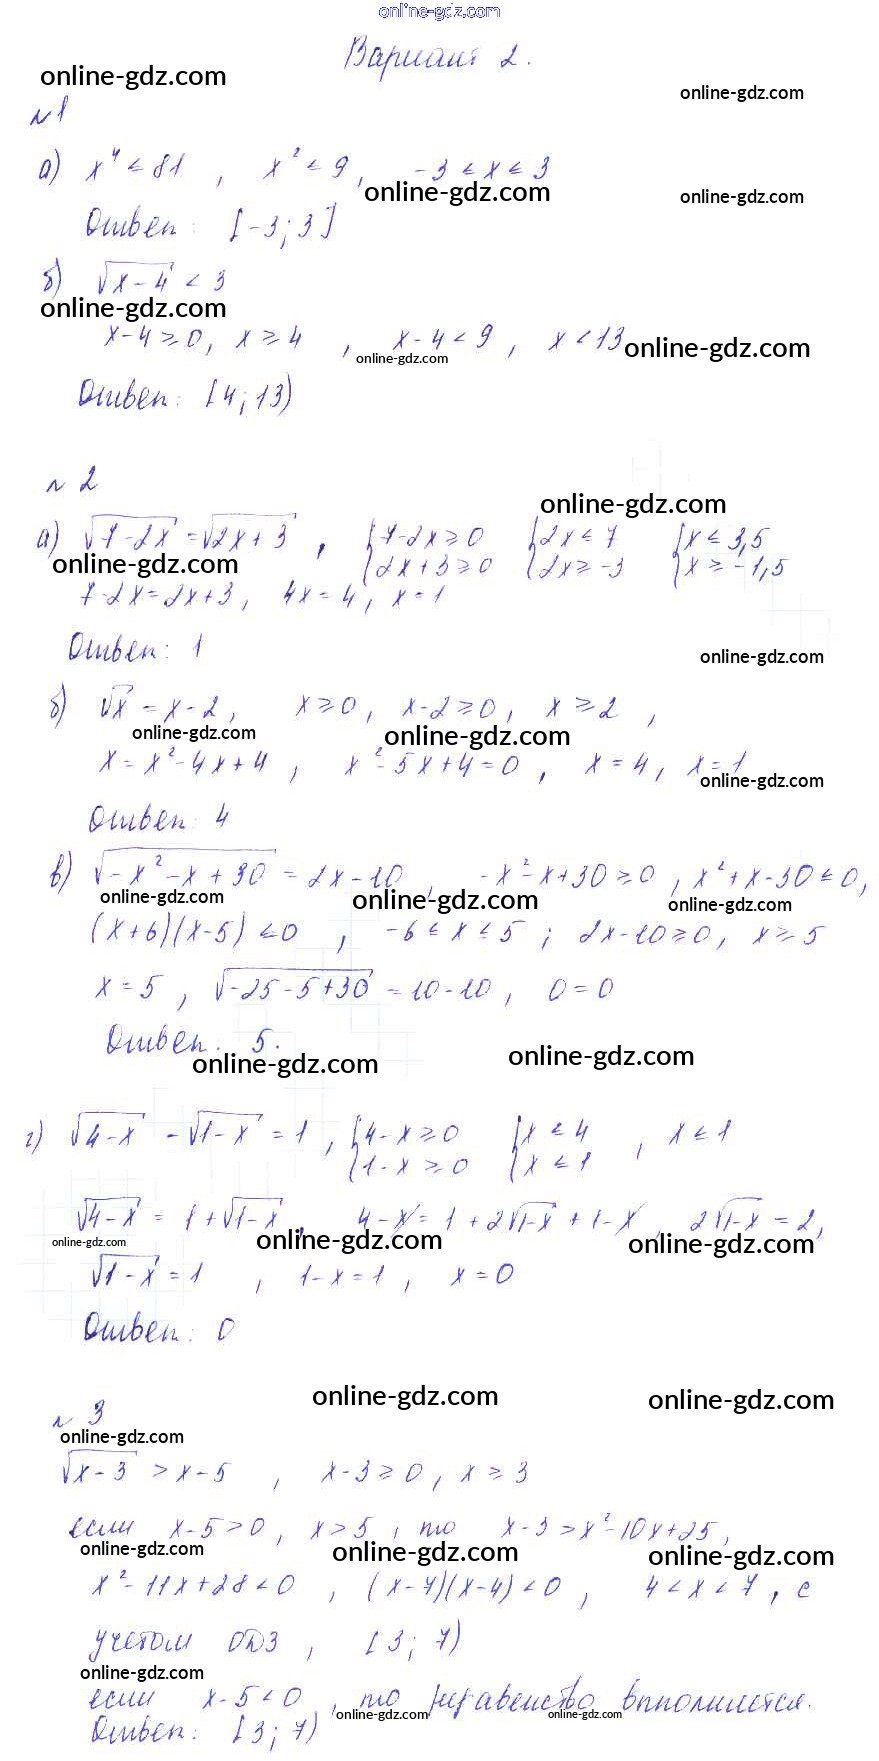 online-gdz.com
Вариант 2.
online-gdz.com
online-gdz.com
№1
а) x⁴ ≤ 81 , x² ≤ 9, -3 ≤ x ≤ 3
online-gdz.com
online-gdz.com
Ответ: [-3; 3]
б) √(x-4) < 3
online-gdz.com
x-4 ≥ 0, x ≥ 4 , x-4 < 9 , x < 13
online-gdz.com
online-gdz.com
Ответ: [4; 13)
№ 2
online-gdz.com
а) √(7-2x) = √(2x+3) , {7-2x ≥ 0 {2x ≤ 7 {x ≤ 3,5
online-gdz.com {2x+3 ≥ 0 {2x ≥ -3 {x ≥ -1,5
7-2x=2x+3, 4x=4, x=1
Ответ: 1
online-gdz.com
б) √x = x-2, x ≥ 0, x-2 ≥ 0, x ≥ 2 ,
online-gdz.com
online-gdz.com
x = x²-4x+4 , x²-5x+4=0 , x=4, x=1
online-gdz.com
Ответ: 4
в) √(-x²-x+30) = 2x-10 , -x²-x+30 ≥ 0 , x²+x-30 ≤ 0,
online-gdz.com
online-gdz.com
online-gdz.com
(x+6)(x-5) ≤ 0 , -6 ≤ x ≤ 5 ; 2x-10 ≥ 0, x ≥ 5
x=5 , √(-25-5+30) = 10-10, 0=0
Ответ: 5.
online-gdz.com
online-gdz.com
г) √(4-x) - √(1-x) = 1 , {4-x ≥ 0 {x ≤ 4 , x ≤ 1
{1-x ≥ 0 {x ≤ 1
√(4-x) = 1+√(1-x) , 4-x = 1+2√(1-x)+1-x , 2√(1-x) = 2,
online-gdz.com
online-gdz.com
online-gdz.com
√(1-x) = 1 , 1-x=1 , x=0
Ответ: 0
online-gdz.com
online-gdz.com
№ 3
online-gdz.com
√(x-3) > x-5 , x-3 ≥ 0, x ≥ 3
если x-5>0, x>5 , то x-3 > x²-10x+25,
online-gdz.com
online-gdz.com
online-gdz.com
x²-11x+28<0 , (x-7)(x-4)<0 , 4<x<7, с
учетом ОДЗ , [3; 7)
online-gdz.com
если x-5<0 , то неравенство выполняется.
online-gdz.com
online-gdz.com
Ответ: [3; 7)